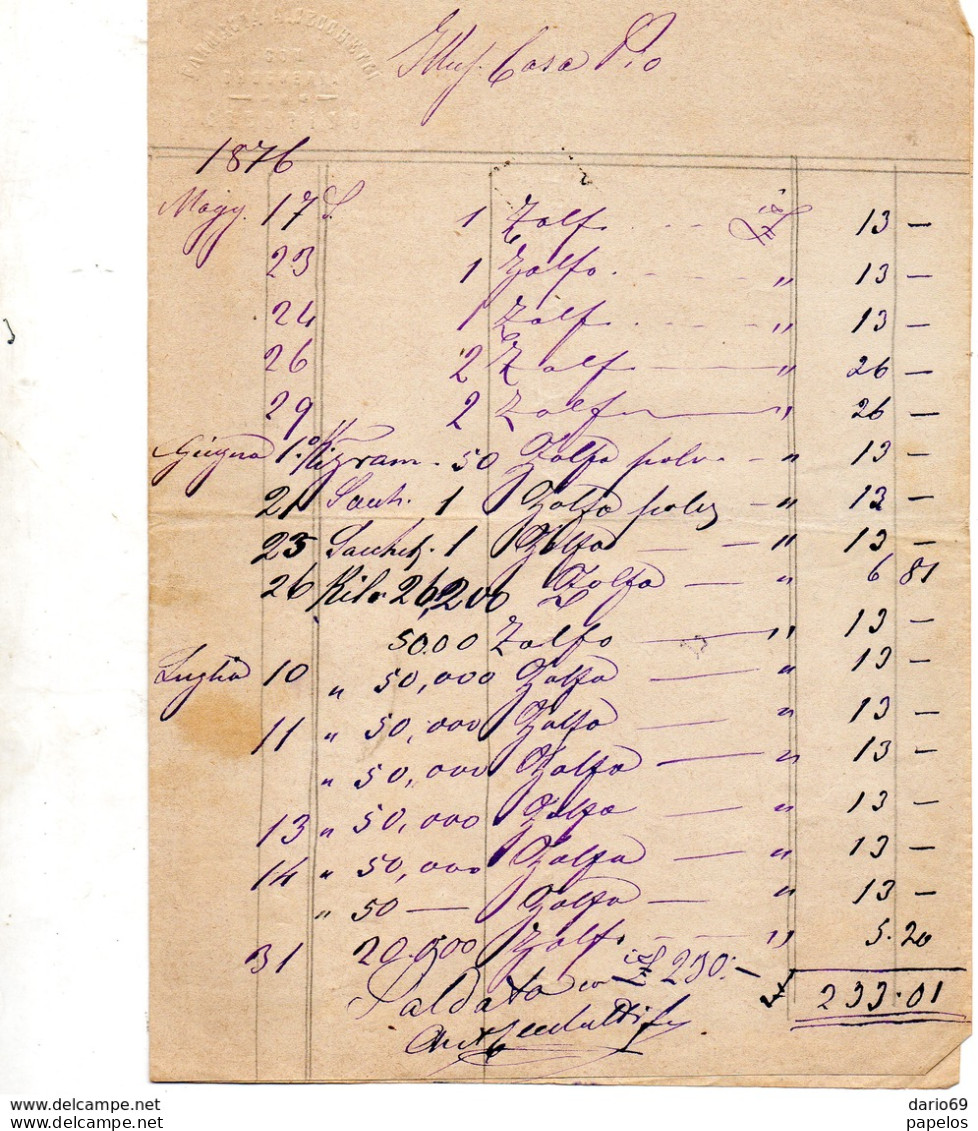 Casa Pio
1876
Magg. 17 S. 1 Zolf. 13 —
23 1 Zolfo " 13 —
24 1 Zolf " 13 —
26 2 Zolf " 26 —
29 2 Zolf " 26 —
Giugno 1.° Kigram. 50 Zolfo polv. " 13 —
21 Sacch. 1 Zolfo polv " 13 —
23 Sacchet. 1 Zolfo " 13 —
26 Kilo 26,200 Zolfo " 6 81
5000 Zolfo " 13 —
Luglio 10 " 50,000 Zolfo " 13 —
11 " 50,000 Zolfo " 13 —
" 50,000 Zolfo " 13 —
13 " 50,000 Zolfo " 13 —
14 " 50,000 Zolfo " 13 —
" 50 — Zolfo " 13 —
31 20.000 Zolf. " 5.20
233.01
Saldato co 230:—
dario69
papelos